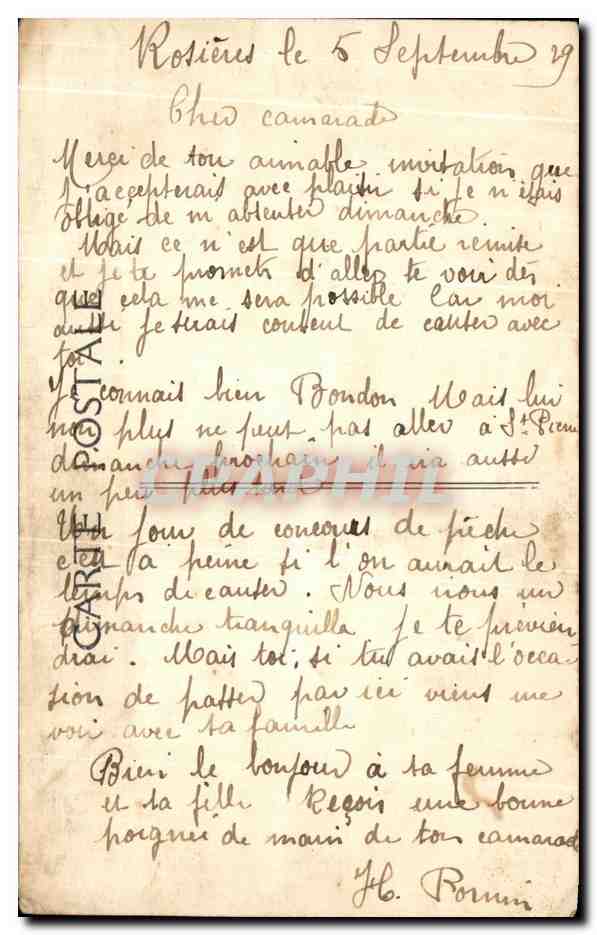 Rosières le 5 Septembre 29
Cher camarade
Merci de ton aimable invitation que
j'accepterais avec plaisir si je n'étais
obligé de m'absenter dimanche.
Mais ce n'est que partie remise
et je te promets d'aller te voir dès
que cela me sera possible Car moi
aussi je serais content de causer avec
toi.
Je connais bien Bondon Mais lui
non plus ne peut pas aller à St Pierre
dimanche prochain il ira aussi
un peu plus tard
Un jour de concours de pêche
c'est a peine si l'on aurait le
temps de causer. Nous irons un
dimanche tranquille je te prévien
drai. Mais toi, si tu avais l'occa-
sion de passer par ici viens me
voir avec ta famille
Bien le bonjour à ta femme
et ta fille Reçois une bonne
poignée de main de ton camarade
H.
CARTE POSTALE
CPAPHIL